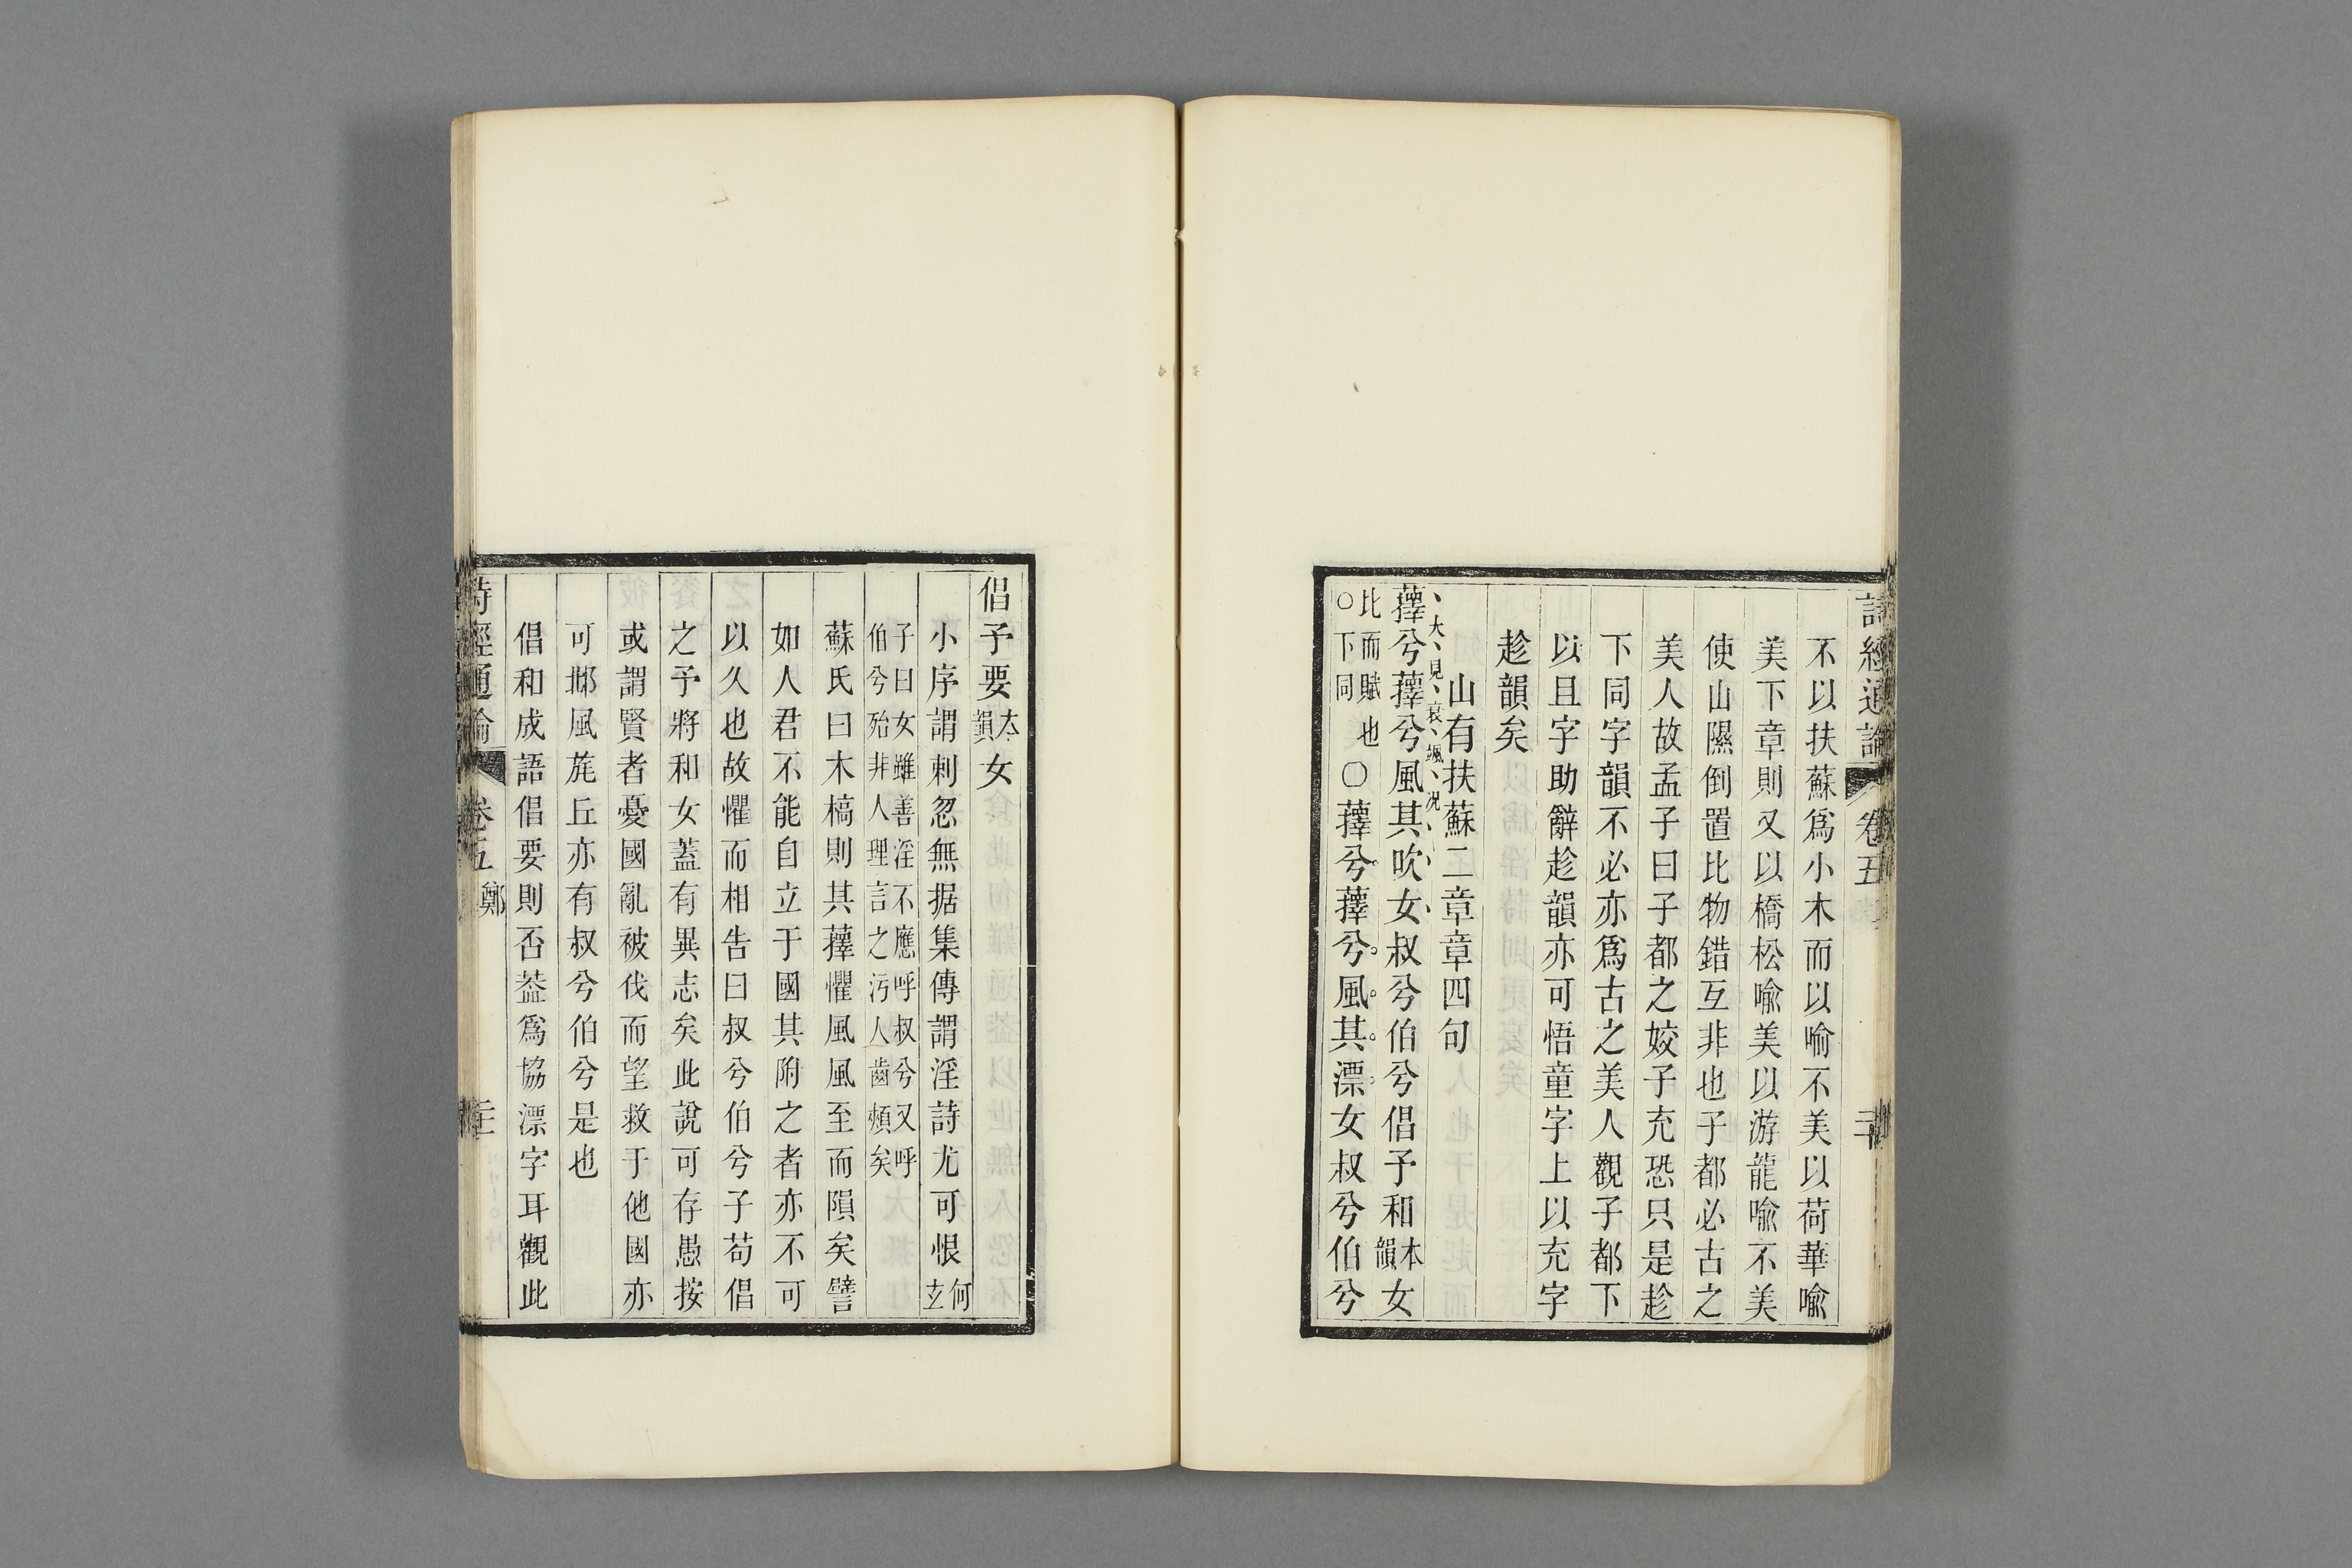 詩經通論 卷五
不以扶蘇爲小木而以喻不美以荷華喻
美下章則又以橋松喻美以游龍喻不美
使山隰倒置比物錯互非也子都必古之
美人故孟子曰子都之姣子充恐只是趁
下同字韻不必亦爲古之美人觀子都下
以且字助辭趁韻亦可悟童字上以充字
趁韻矣
山有扶蘇二章章四句
大見哀颯况
蘀兮蘀兮風其吹女叔兮伯兮倡予和本韻女
比而賦也○下同○蘀兮蘀兮風其漂女叔兮伯兮
倡予要本韻女
小序謂刺忽無据集傳謂淫詩尤可恨何玄
子曰女雖善淫不應呼叔兮又呼
伯兮殆非人理言之污人齒頰矣
蘇氏曰木槁則其蘀懼風風至而隕矣譬
如人君不能自立于國其附之者亦不可
以久也故懼而相告曰叔兮伯兮子苟倡
之予將和女蓋有異志矣此說可存愚按
或謂賢者憂國亂被伐而望救于他國亦
可邶風旄丘亦有叔兮伯兮是也
倡和成語倡要則否葢爲協漂字耳觀此
詩經通論 卷五 鄭